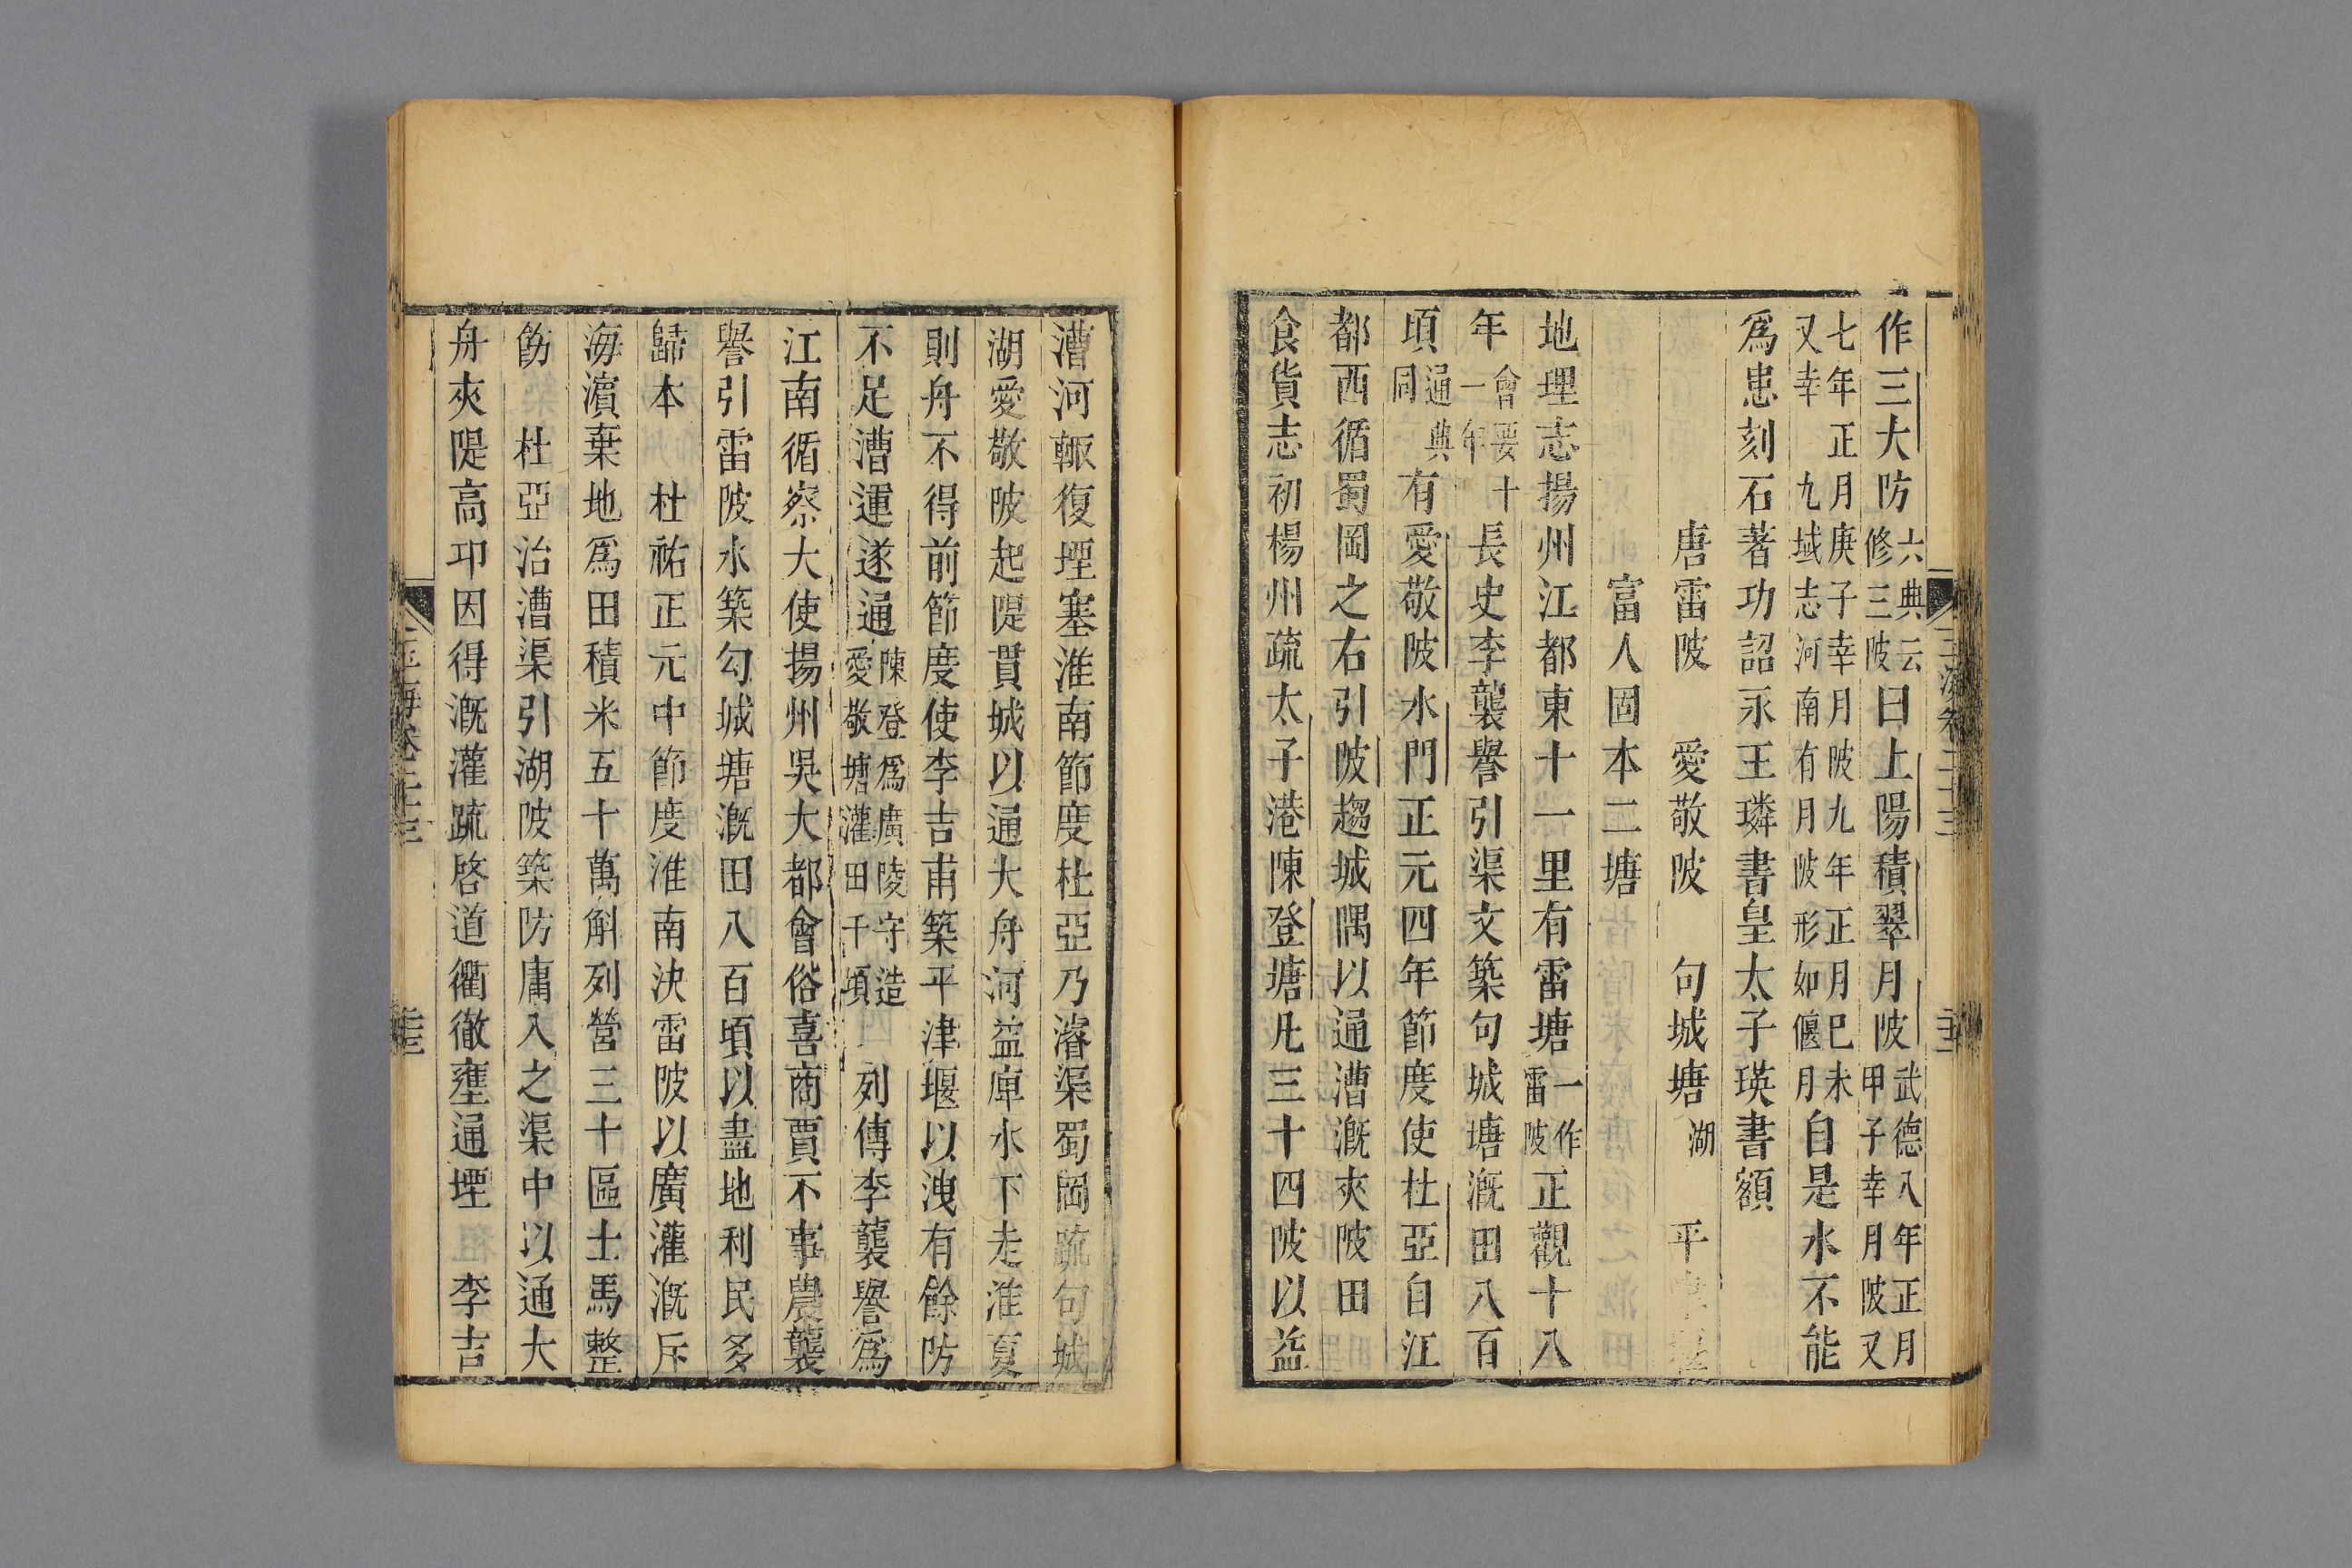 作三大防六典云修三陂曰上陽積翠月陂武德八年正月甲子幸月陂又
七年正月庚子幸月陂九年正月巳未又幸九域志河南有月陂形如偃月自是水不能
爲患刻石著功詔永王璘書皇太子瑛書額
唐雷陂 愛敬陂 句城塘 湖 平
富人固本二塘
地理志揚州江都東十一里有雷塘一作雷陂正觀十八
年會要十一年長史李襲譽引渠文築句城塘漑田八百
頃通典同有愛敬陂水門正元四年節度使杜亞自江
都西循蜀岡之右引陂趨城隅以通漕漑夾陂田
食貨志初楊州疏太子港陳登塘凡三十四陂以益
漕河輙復堙塞淮南節度杜亞乃濬渠蜀岡疏句城
湖愛敬陂起隄貫城以通大舟河益庳水下走淮夏
則舟不得前節度使李吉甫築平津堰以洩有餘防
不足漕運遂通陳登爲廣陵守造愛敬塘灌田千頃 列傳李襲譽爲
江南循察大使揚州吳大都會俗喜商賈不事農襲
譽引雷陂水築勾城塘漑田八百頃以盡地利民多
歸本 杜祐正元中節度淮南決雷陂以廣灌漑斥
海濵棄地爲田積米五十萬斛列營三十區士馬整
飭 杜亞治漕渠引湖陂築防庸入之渠中以通大
舟夾隄高卭因得漑灌疏啓道衢徹壅通堙 李吉